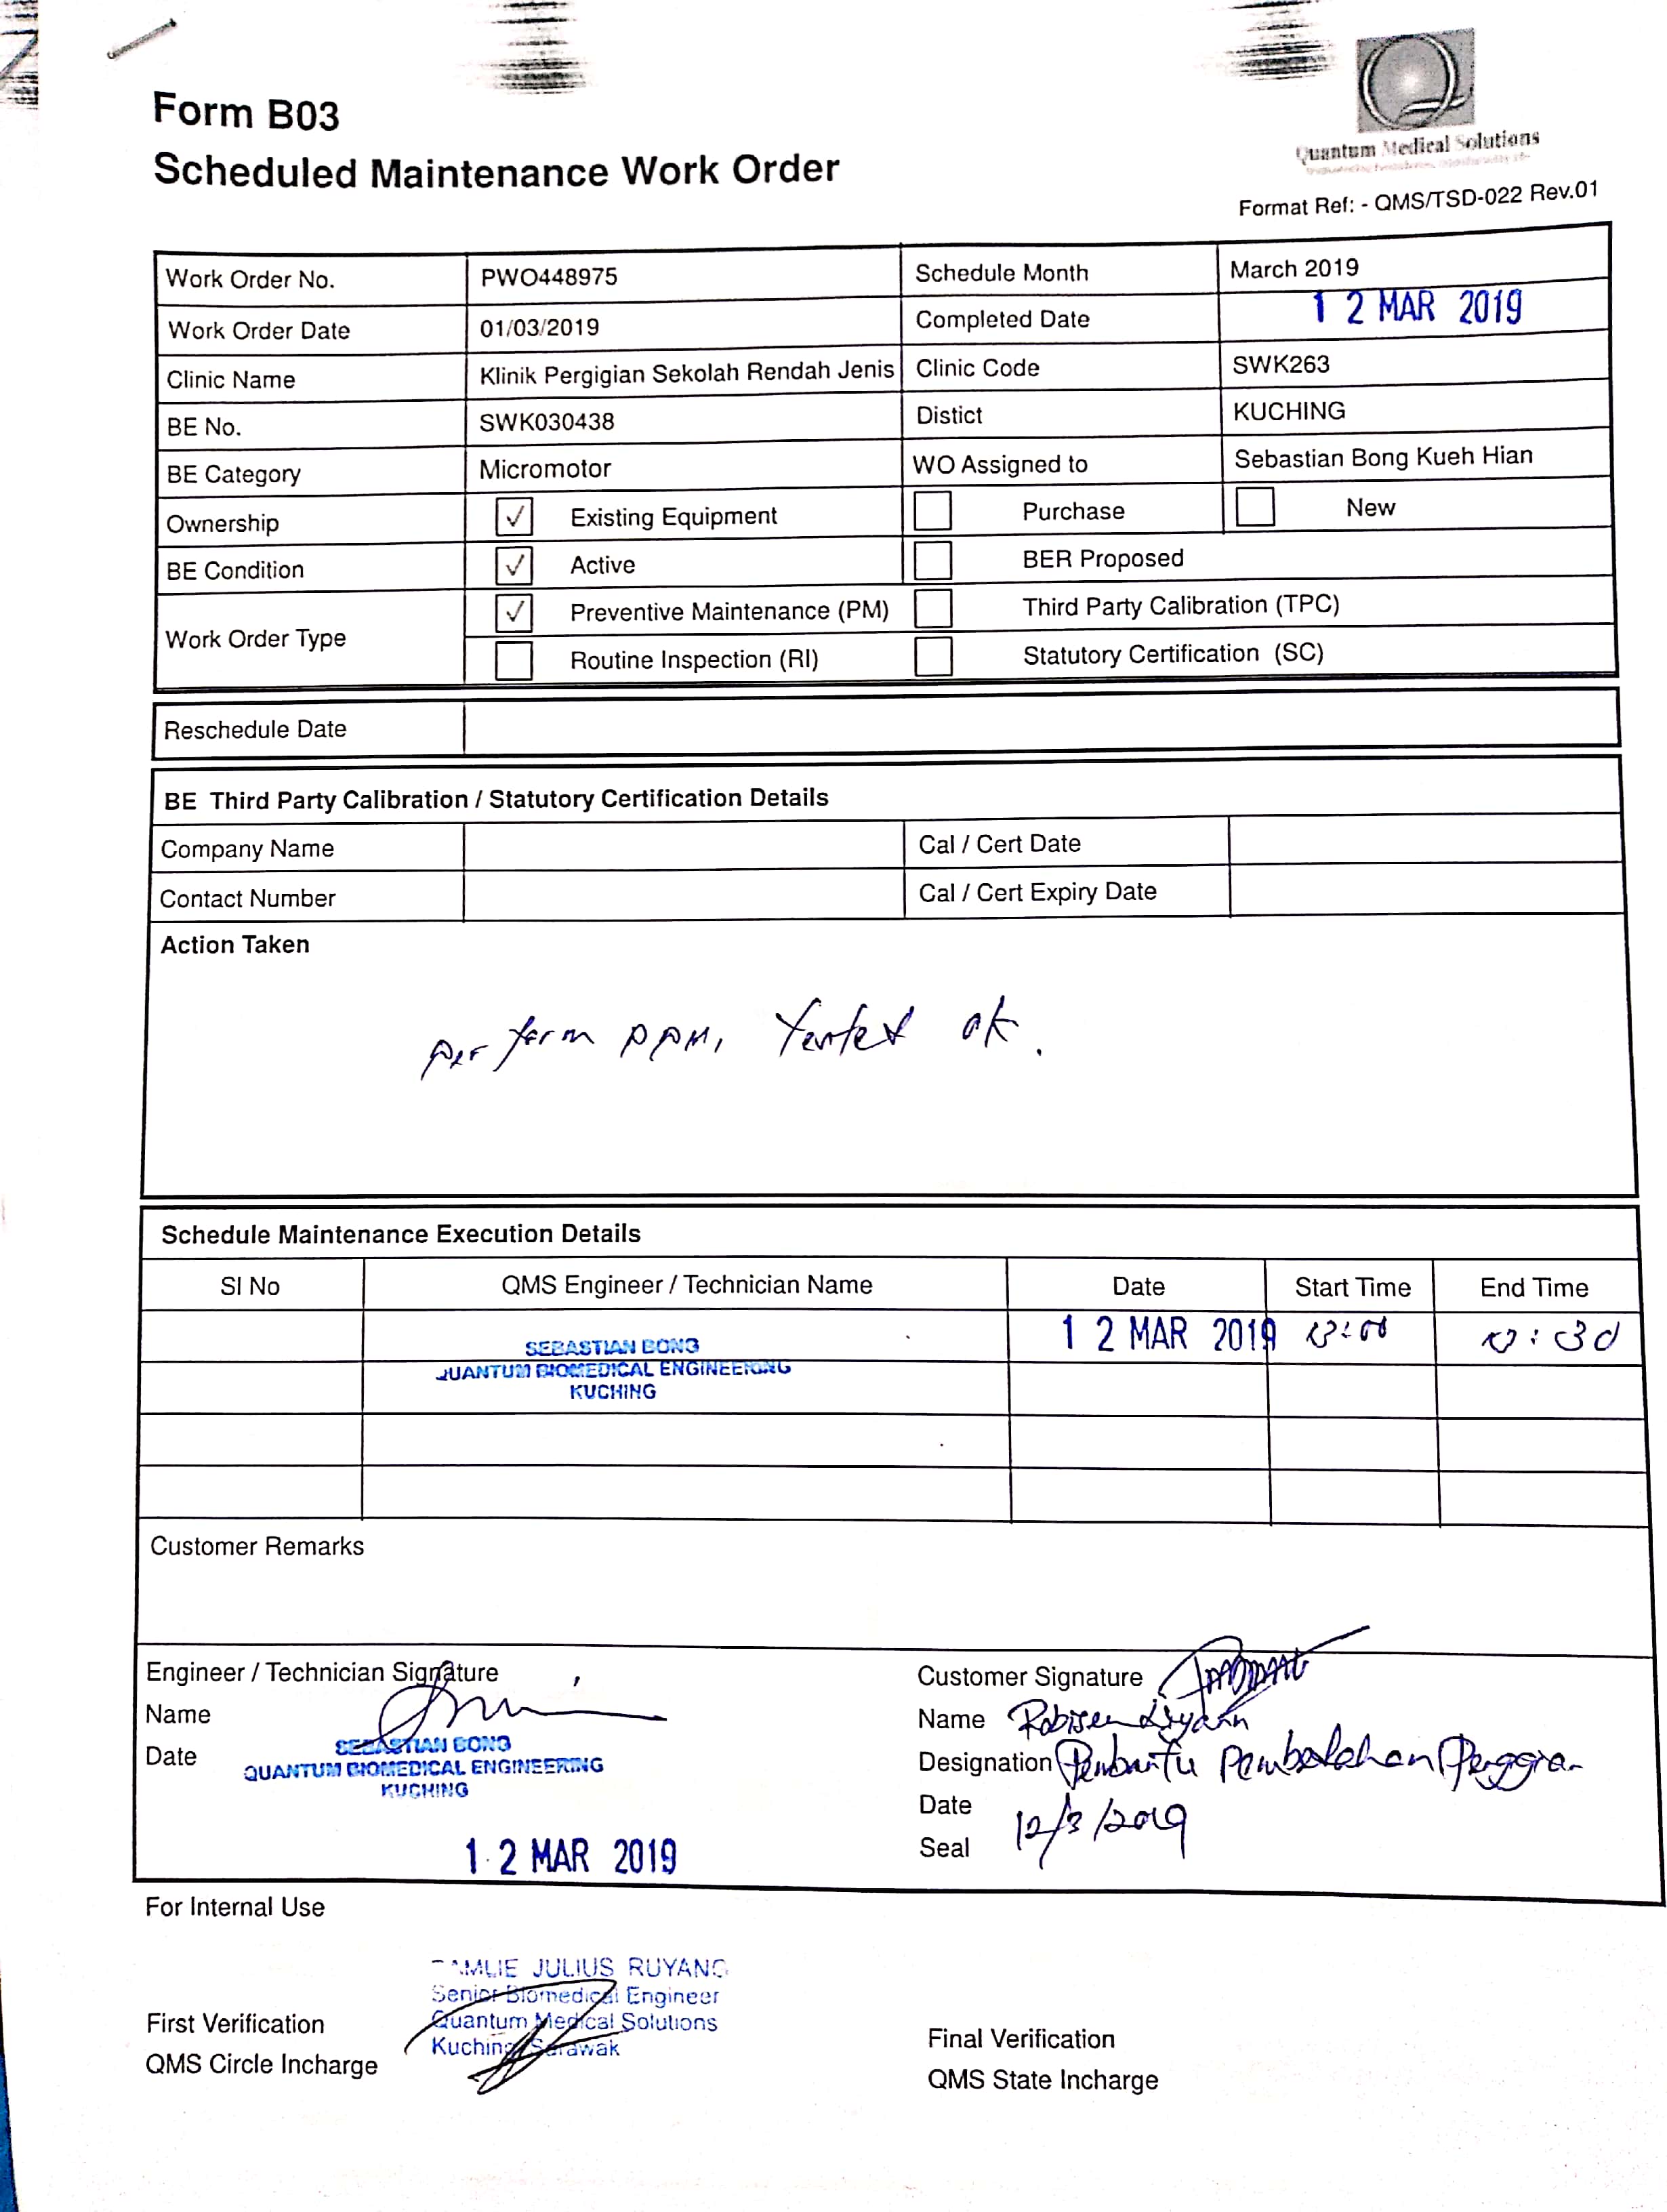 Form B03
Scheduled Maintenance Work Order
Quantum Medical Solutions
Format Ref: - QMS/TSD-022 Rev.01
Work Order No. PWO448975 Schedule Month March 2019
Work Order Date 01/03/2019 Completed Date 12 MAR 2019
Clinic Name Klinik Pergigian Sekolah Rendah Jenis Clinic Code SWK263
BE No. SWK030438 Distict KUCHING
BE Category Micromotor WO Assigned to Sebastian Bong Kueh Hian
Ownership ✓ Existing Equipment Purchase New
BE Condition ✓ Active BER Proposed
Work Order Type ✓ Preventive Maintenance (PM) Third Party Calibration (TPC)
Routine Inspection (RI) Statutory Certification (SC)
Reschedule Date
BE Third Party Calibration / Statutory Certification Details
Company Name Cal / Cert Date
Contact Number Cal / Cert Expiry Date
Action Taken
Perform PPM, Tested ok.
Schedule Maintenance Execution Details
SI No QMS Engineer / Technician Name Date Start Time End Time
SEBASTIAN BONG 12 MAR 2019
QUANTUM BIOMEDICAL ENGINEERING
KUCHING
Customer Remarks
Engineer / Technician Signature
Name
Date
SEBASTIAN BONG
QUANTUM BIOMEDICAL ENGINEERING
KUCHING
12 MAR 2019
Customer Signature
Name
Designation Pembantu Pembedahan Pergigian
Date 12/3/2019
Seal
For Internal Use
JULIUS RUYANG
Senior Biomedical Engineer
Quantum Medical Solutions
Kuching Sarawak
First Verification
QMS Circle Incharge
Final Verification
QMS State Incharge